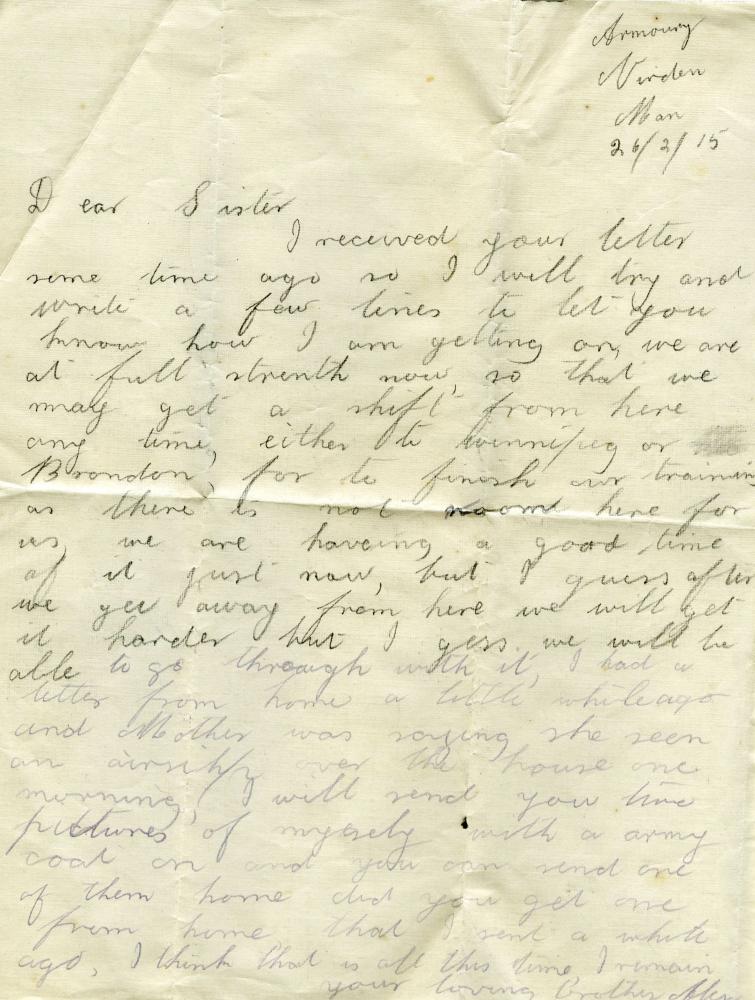 Armoury
Virden
Man
26/2/15
Dear Sister
I received your letter
some time ago so I will try and
write a few lines to let you
know how I am getting on, we are
at full strenth now, so that we
may get a shift from here
any time, either to winnipeg or
Brandon, for to finish our training
as there is not room here for
us, we are haveing a good time
of it just now, but I guess after
we get away from here we will get
it harder but I gess we will be
able to go through with it, I had a
letter from home a little while ago
and Mother was saying she seen
an airsihp over the house one
morning, I will send you two
pictures of myself with a army
coat on and you can send one
of them home did you get one
from home that I sent a while
ago, I think that is all this time, I remain
your loving Brother